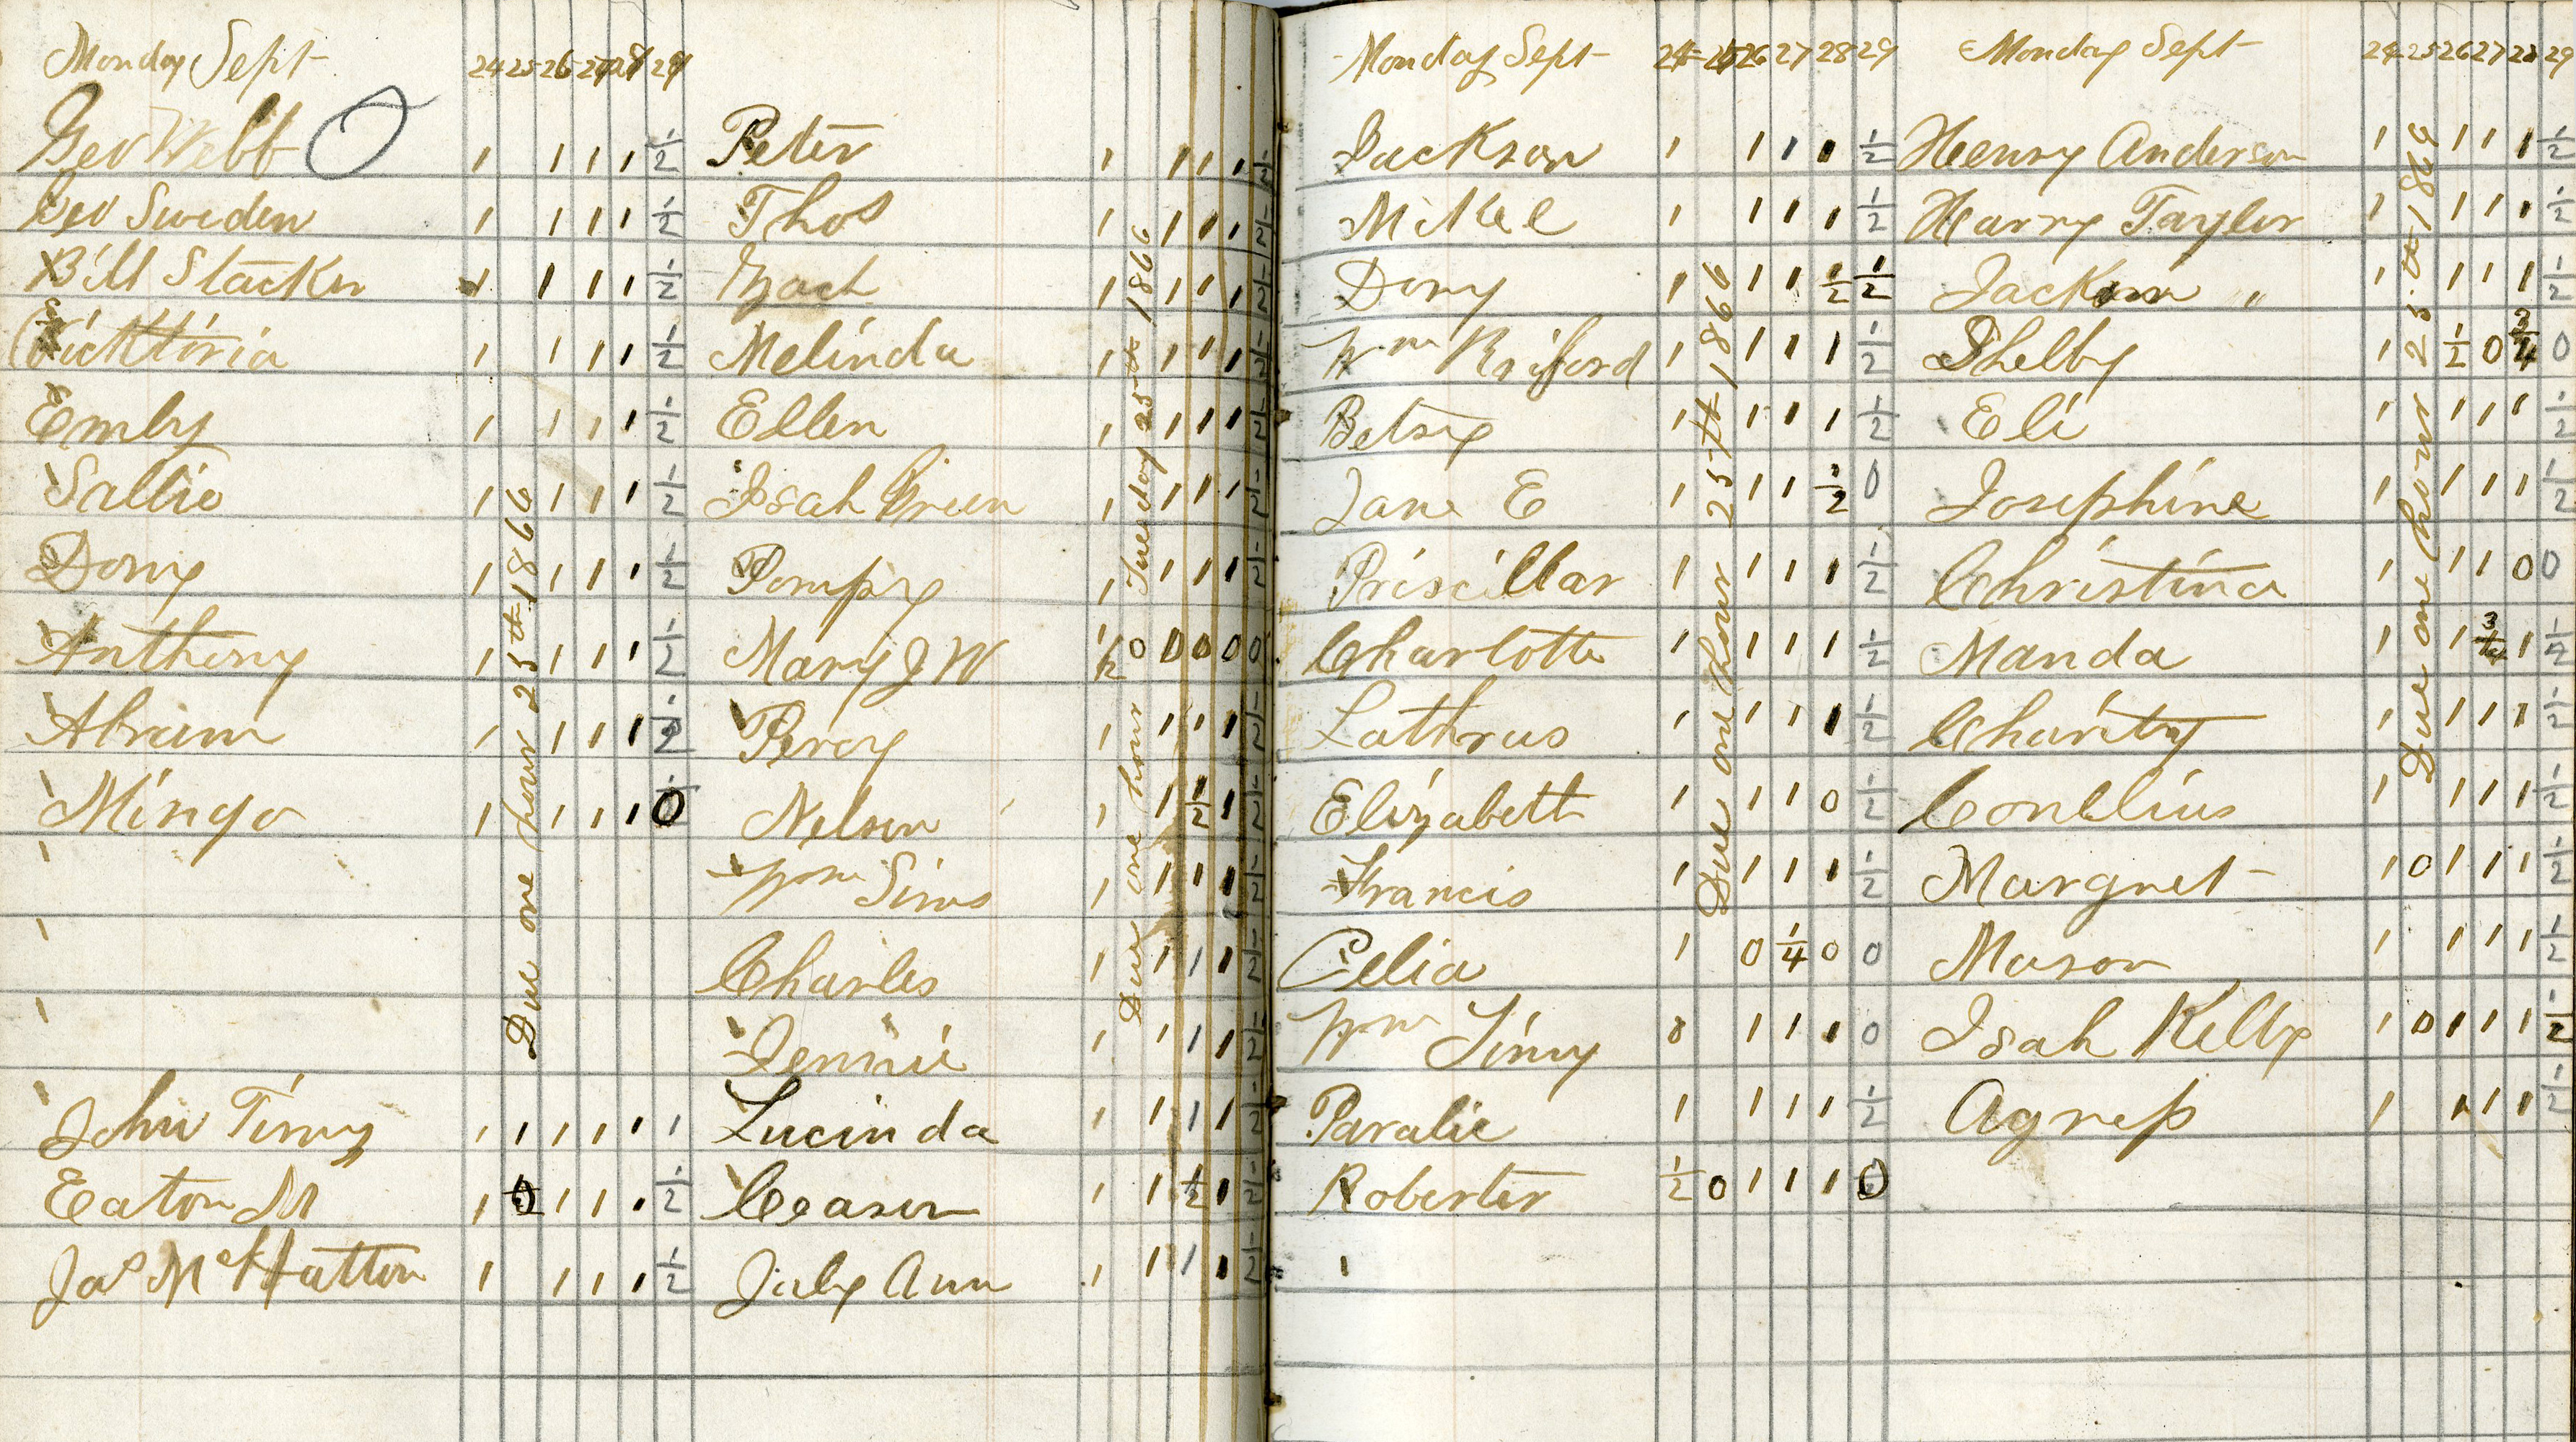 Monday Sept 24 25 26 27 28 29
Geo Webb 1 1 1 1 1/2
Geo Sweden 1 1 1 1 1/2
Bill Stacker 1 1 1 1 1/2
Vicktoria 1 1 1 1 1/2
Emly 1 1 1 1 1/2
Sallie 1 1 1 1 1/2
Dony 1 1 1 1 1/2
Anthony 1 1 1 1 1/2
Abram 1 1 1 1 1/2
Mingo 1 1 1 1 0
Due one hour 25th 1866
John Timy 1 1 1 1 1 1
Eaton M 1 0 1 1 1 1/2
Jas McHatton 1 1 1 1 1/2
Peter 1 1 1 1 1/2
Thos 1 1 1 1 1/2
Zach 1 1 1 1 1/2
Melinda 1 1 1 1 1/2
Ellen 1 1 1 1 1/2
Isah Green 1 1 1 1 1/2
Pompy 1 1 1 1 1/2
Mary J W 1/2 0 0 0 0 0
Percy 1 1 1 1 1/2
Nelson 1 1 1/2 1 1/2
Wm Sims 1 1 1 1 1/2
Charles 1 1 1 1 1/2
Jennie 1 1 1 1 1/2
Lucinda 1 1 1 1 1/2
Ceaser 1 1 1/2 1 1/2
July Ann 1 1 1 1 1/2
Due one hour Tuesday 25th 1866
Monday Sept 24 25 26 27 28 29
Jackson 1 1 1 1 1/2
Mikel 1 1 1 1 1/2
Dony 1 1 1 1/2 1/2
Wm 1 1 1 1 1/2
Betsy 1 1 1 1 1/2
Jane E 1 1 1 1/2 0
Priscillar 1 1 1 1 1/2
Charlotte 1 1 1 1 1/2
Lathrus 1 1 1 1 1/2
Elizabeth 1 1 1 0 1/2
Francis 1 1 1 1 1/2
Celia 1 0 1/4 0 0
Wm Timy 0 1 1 1 0
Paralie 1 1 1 1 1/2
Roberter 1/2 0 1 1 1 0
Due one hour 25th 1866
Monday Sept 24 25 26 27 28 29
Henry Anderson 1 1 1 1 1/2
Harry Tayler 1 1 1 1 1/2
Jackson " 1 1 1 1 1/2
Shelby 1 1/2 0 3/4 0
Eli 1 1 1 1 1/2
Josephine 1 1 1 1 1/2
Christina 1 1 1 0 0
Manda 1 1 3/4 1 1/2
Charity 1 1 1 1 1/2
Conelius 1 1 1 1 1/2
Margret 1 0 1 1 1 1/2
Mason 1 1 1 1 1/2
Isah Kelly 1 0 1 1 1 1/2
Agness 1 1 1 1 1/2
Due one hour 25th 1866